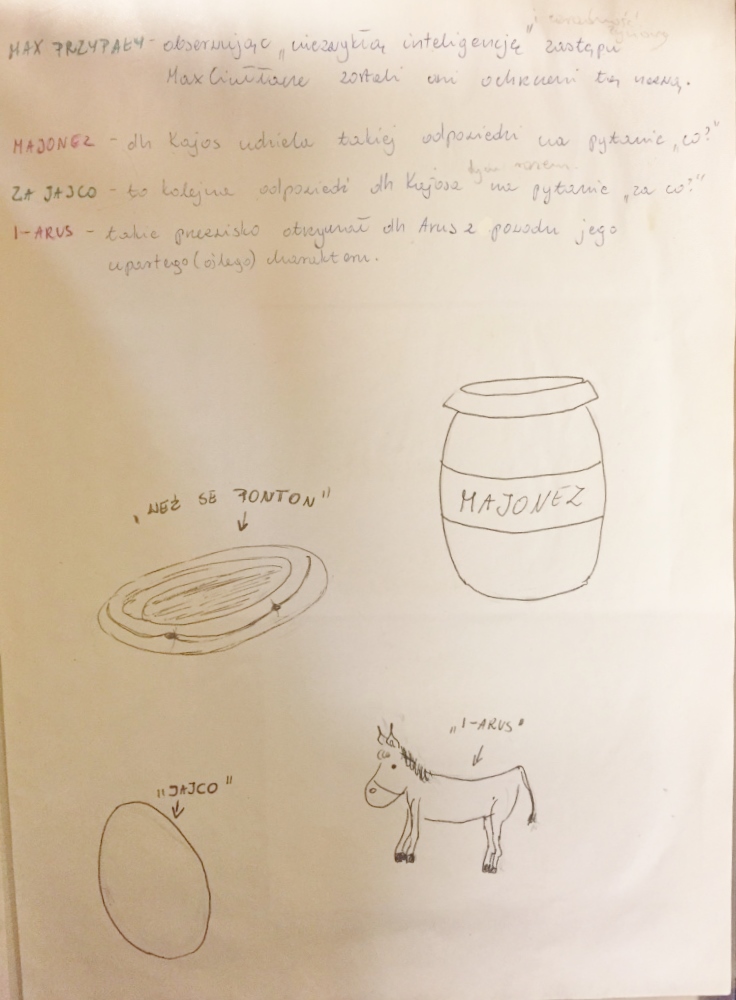 MAX PRZYPAŁY - obserwując „niezwykłą inteligencję" zastępu
Max Ciułłane zostali oni ochrzceni tą nazwą.
MAJONEZ - dh Kajos udziela takiej odpowiedzi na pytanie „co?"
ZA JAJCO - to kolejna odpowiedź dh Kajosa na pytanie „za co?"
I-ARUS - takie przezwisko otrzymał dh Arus z powodu jego
upartego (oślego) charakteru.
MAJONEZ
„WEŹ SE PONTON"
„I-ARUS"
"JAJCO"